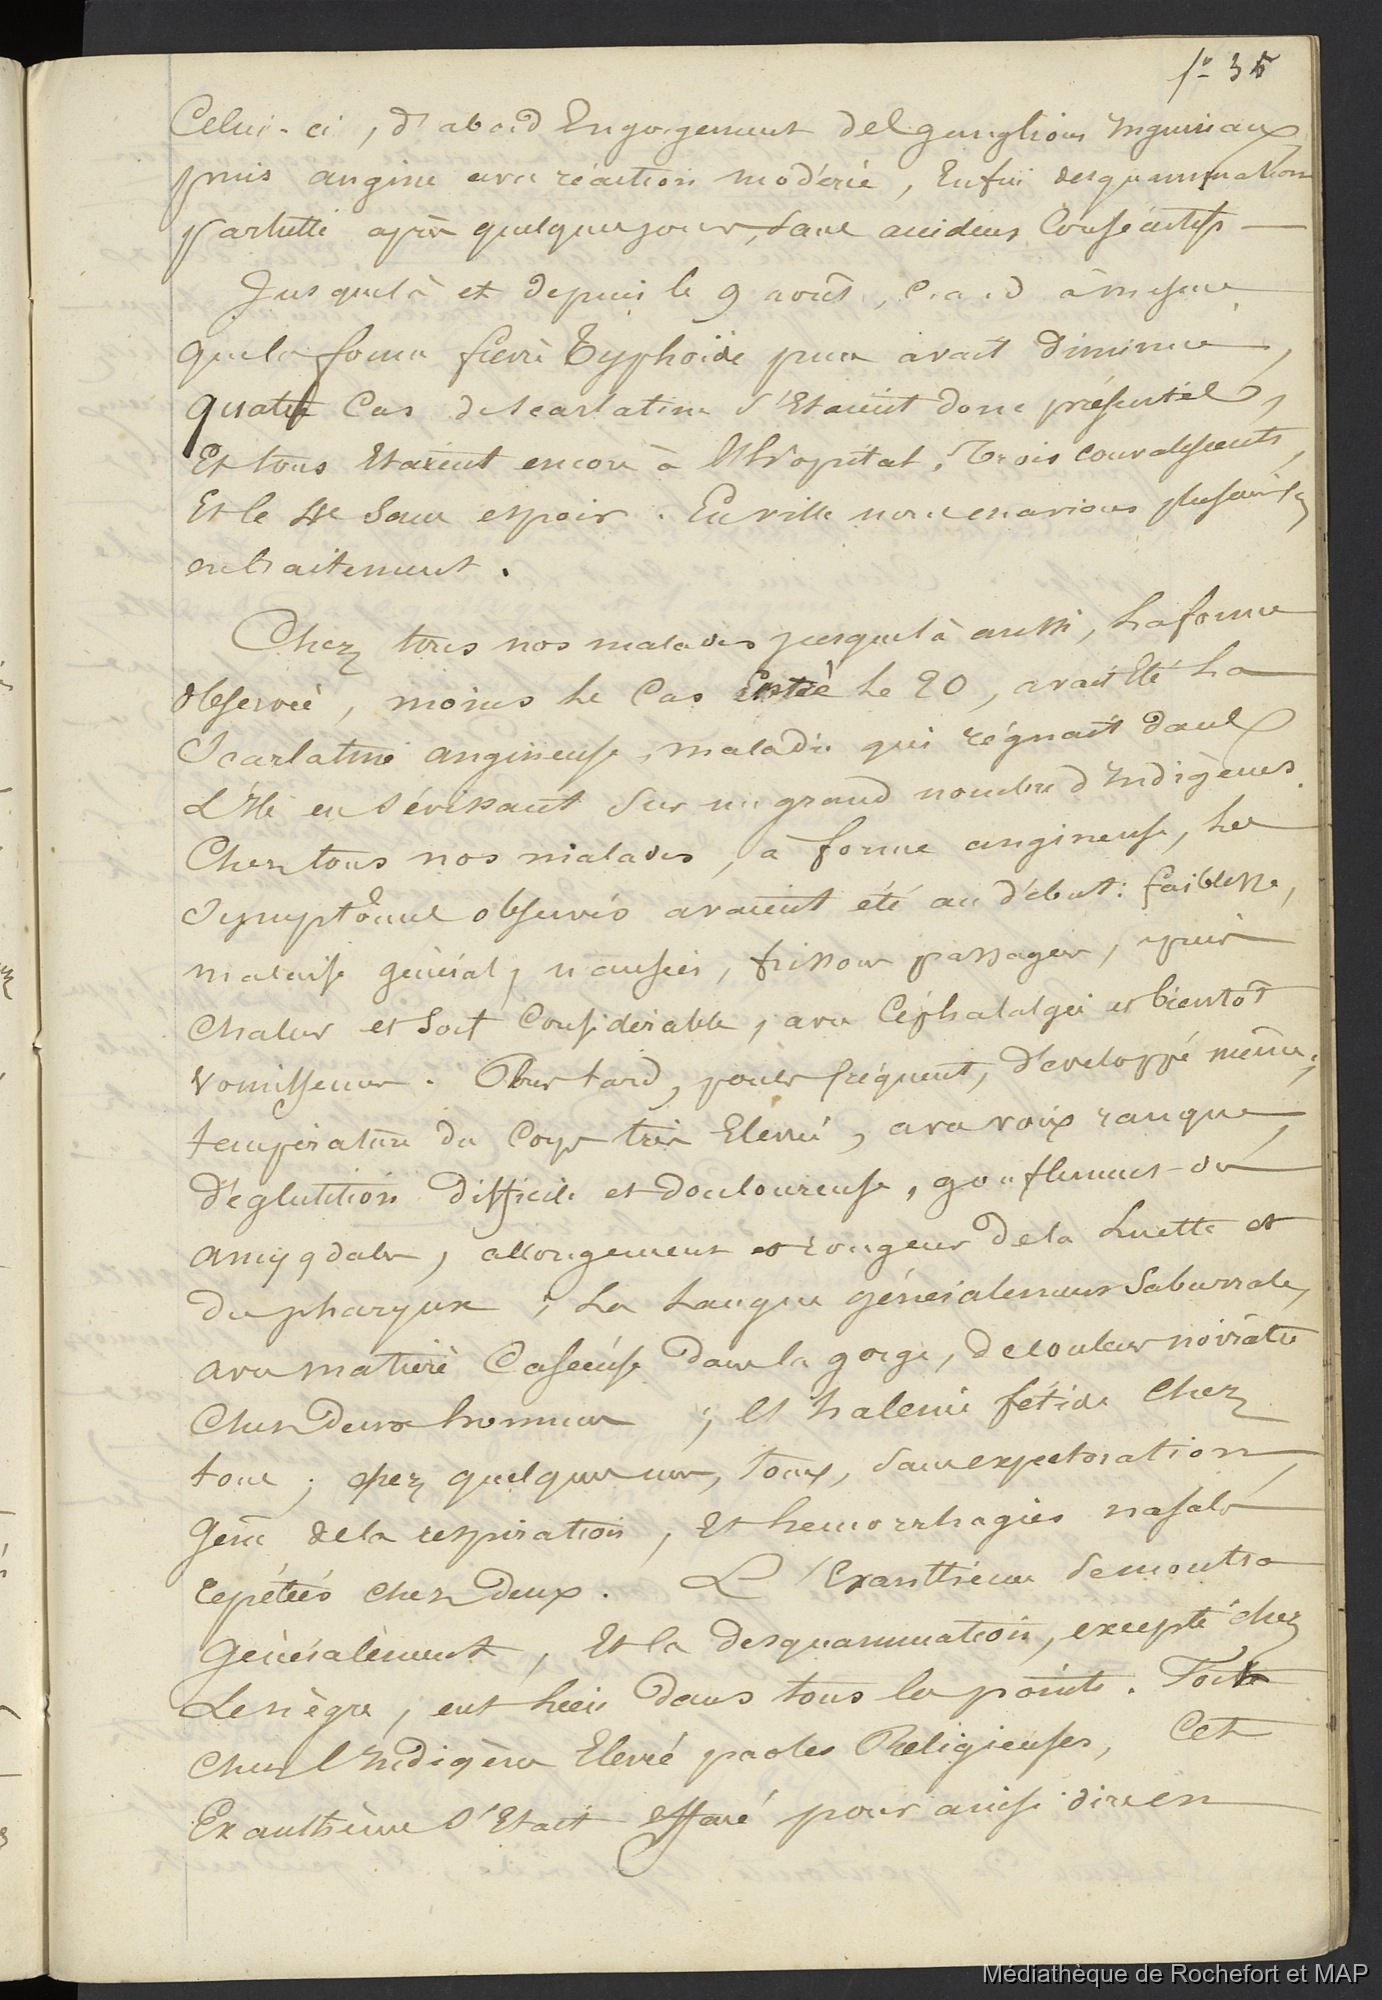 fo 35
Celui-ci, d'abord Engorgement des ganglions Inguinaux
puis angine avec réaction modérée, Enfin desquammation
partielle après quelques jours, sans accidens Consécutifs —
Jusque là et depuis le 9 août, c.a.d à mesure
que la forme fièvre Typhoïde pure avait diminué,
quatre Cas de scarlatine s'Etaient donc présentés,
Et tous Etaient encore à l'hôpital, Trois convalescents,
Et le 4e Sans espoir. En ville nous en avions plusieurs
en traitement.
Chez tous nos malades jusque là aussi, La forme
observée, moins le Cas Entré le 20, avait Eté La
Scarlatine angineuse, maladie qui régnait dans
L'Ile en Sévissant Sur un grand nombre d'Indigènes.
Chez tous nos malades, à forme angineuse, les
Symptômes observés avaient été au début: faiblesse,
malaise général, nausées, frissons passagers, puis
Chaleur et Soif Considérable, avec Céphalalgie et bientôt
Vomissemens. Plus tard, pouls fréquent, développé même,
température du Corps très Elevée, avec voix rauque,
déglutition difficile et douloureuse, gonflement des
amygdales, allongement et rougeur de la Luette et
du pharynx; La Langue généralement Saburrale,
avec matière Caséeuse dans la gorge, de couleur noirâtre
Chez Deux hommes; Et haleine fétide Chez
tous; chez quelques uns, Toux, Sans expectoration,
Gêne de la respiration, Et hemorrhagies nasales
répétées chez Deux. L'Exanthème Se montra
Généralement, Et la desquammation, excepté chez
Le nègre, eut Lieu Dans tous les points. Toute
Chez l'Indigène Elevé par les Religieuses, Cet
Exanthème S'Etait effacé pour ainsi dire en
Médiathèque de Rochefort et MAP